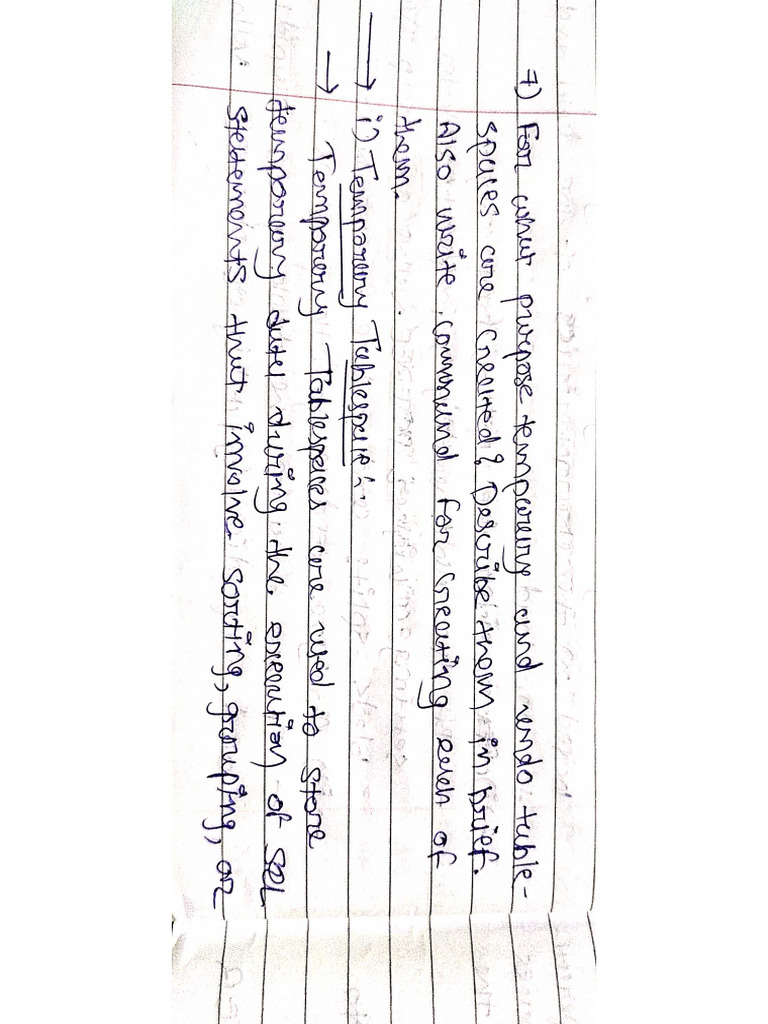 7) For what purpose temporary and undo table-
spaces are created? Describe them in brief.
Also write command for creating each of
them.
→ i) Temporary Tablespace :-
→ Temporary Tablespaces are used to store
temporary data during the execution of SQL
statements that involve sorting, grouping, or